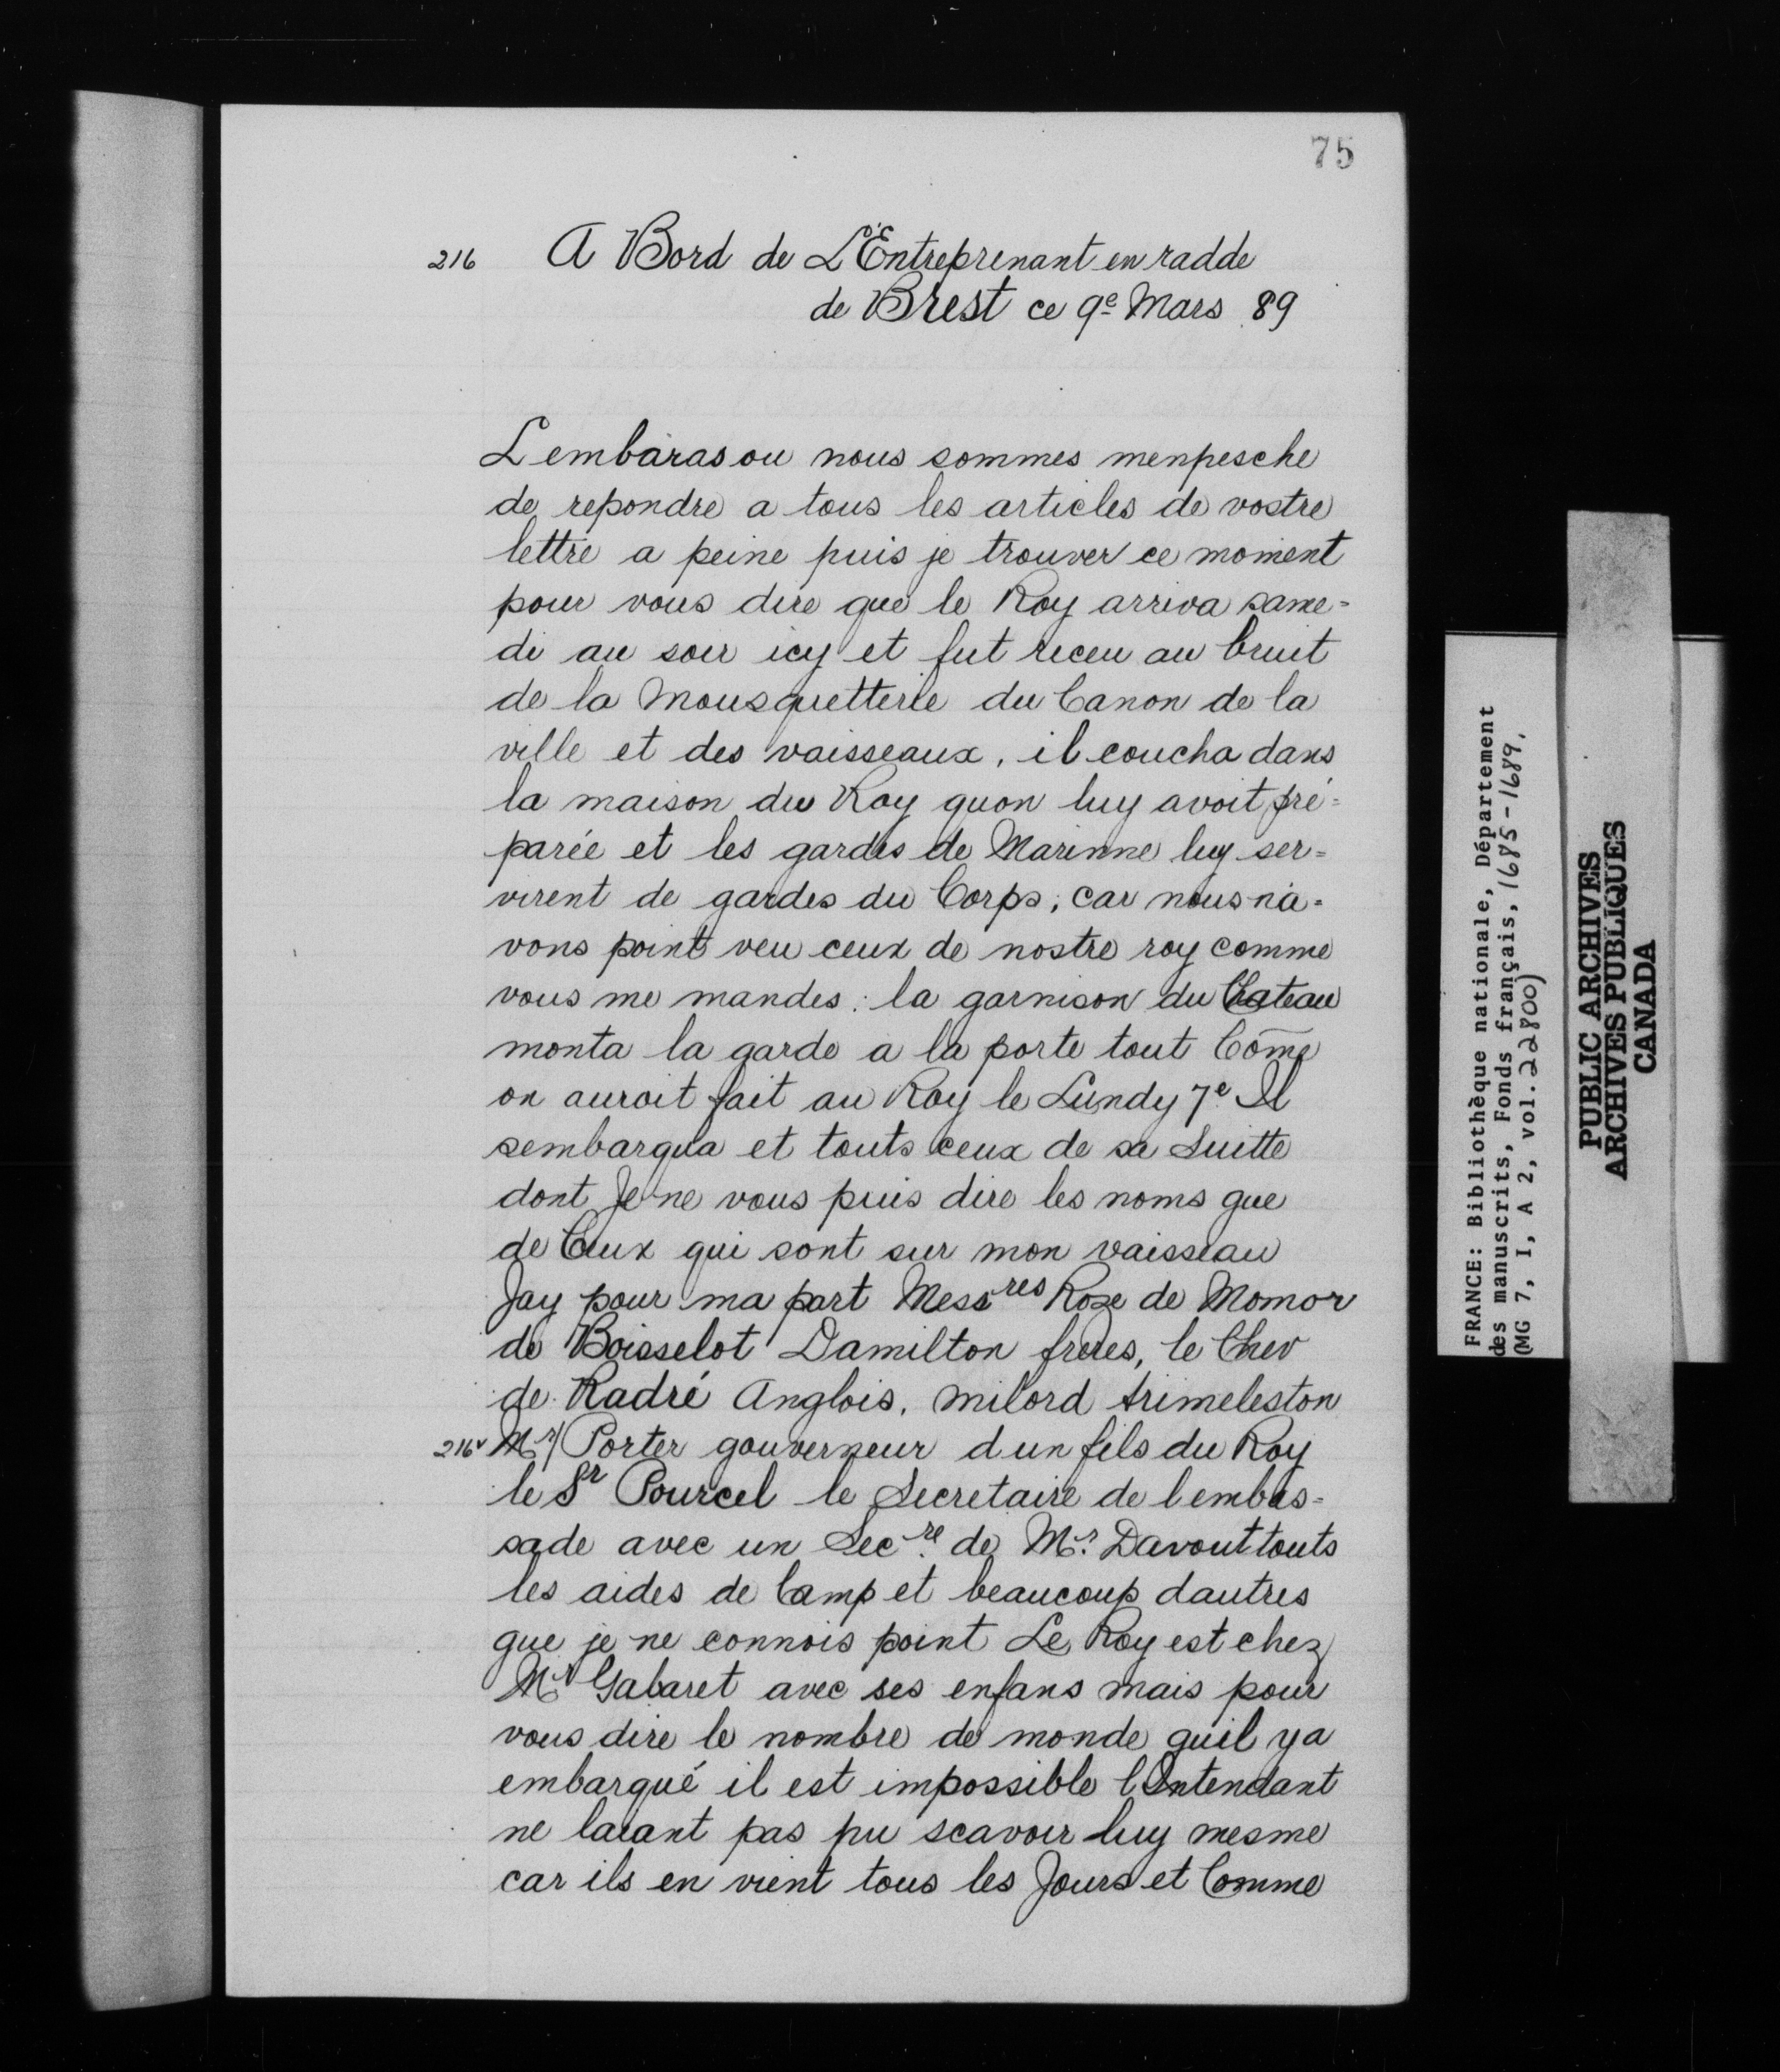 75
216 A Bord de L'Entreprenant en radde
de Brest ce 9e Mars 89
Lembaras ou nous sommes menpesche
de repondre a tous les articles de vostre
lettre a peine puis je trouver ce moment
pour vous dire que le Roy arriva same=
di au soir icy et fut receu au bruit
de la Mousquetterie du Canon de la
ville et des vaisseaux, il coucha dans
la maison du Roy quon luy avoit pré=
parée et les gardes de Marinne luy ser=
virent de gardes du Corps; car nous na=
vons point veu ceux de nostre roy comme
vous me mandes: la garnison du Chateau
monta la garde a la porte tout Com̄e
on auroit fait au Roy le Lundy 7e Il
sembarqua et touts ceux de sa Suitte
dont Je ne vous puis dire les noms que
de Ceux qui sont sur mon vaisseau
Jay pour ma part Messres Roze de Momor
de Boisselot Damilton freres, le Chev
de Radré Anglois, milord trimeleston
216v Mr/ Porter gouverneur dun fils du Roy
le Sr Pourcel le Secretaire de lembas=
sade avec un Secre de Mr Davout touts
les aides de Camp et beaucoup dautres
que je ne connois point Le Roy est chez
Mr Gabaret avec ses enfans mais pour
vous dire le nombre de monde quil ya
embarqué il est impossible lIntendant
ne laiant pas pu scavoir luy mesme
car ils en vient tous les Jours et Comme
FRANCE: Bibliothèque nationale, Département
des manuscrits, Fonds français, 1685-1689,
(MG 7, I, A 2, vol. 22800)
PUBLIC ARCHIVES
ARCHIVES PUBLIQUES
CANADA